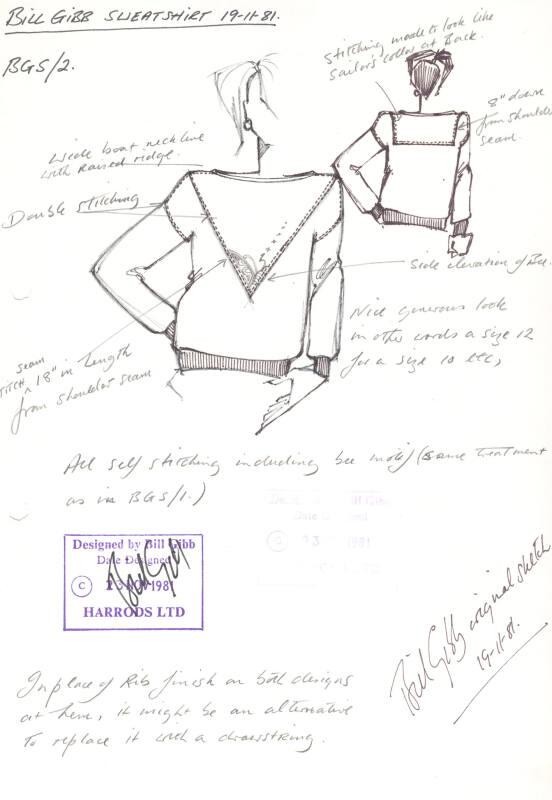 BILL GIBB SWEATSHIRT 19-11-81.
BGS/2.
Stitching made to look like
Sailor's collar at Back.
8" down
from shoulder
seam.
Wide boat neckline
with raised ridge.
Double stitching
Side elevation of Bee.
Nice generous look
in other words a size 12
for a size 10 etc,
seam
STITCH ^ 18" in length
from shoulder seam
All self stitching including bee motif (same treatment
as in BGS/1.)
Designed by Bill Gibb
Date Designed
© 23 NOV 1981
HARRODS LTD
Bill Gibb
Bill Gibb
Date Designed
© 23 1981
Bill Gibb original sketch
19-11-81.
In place of Rib finish on both designs
at hem, it might be an alternative
to replace it with a drawstring.